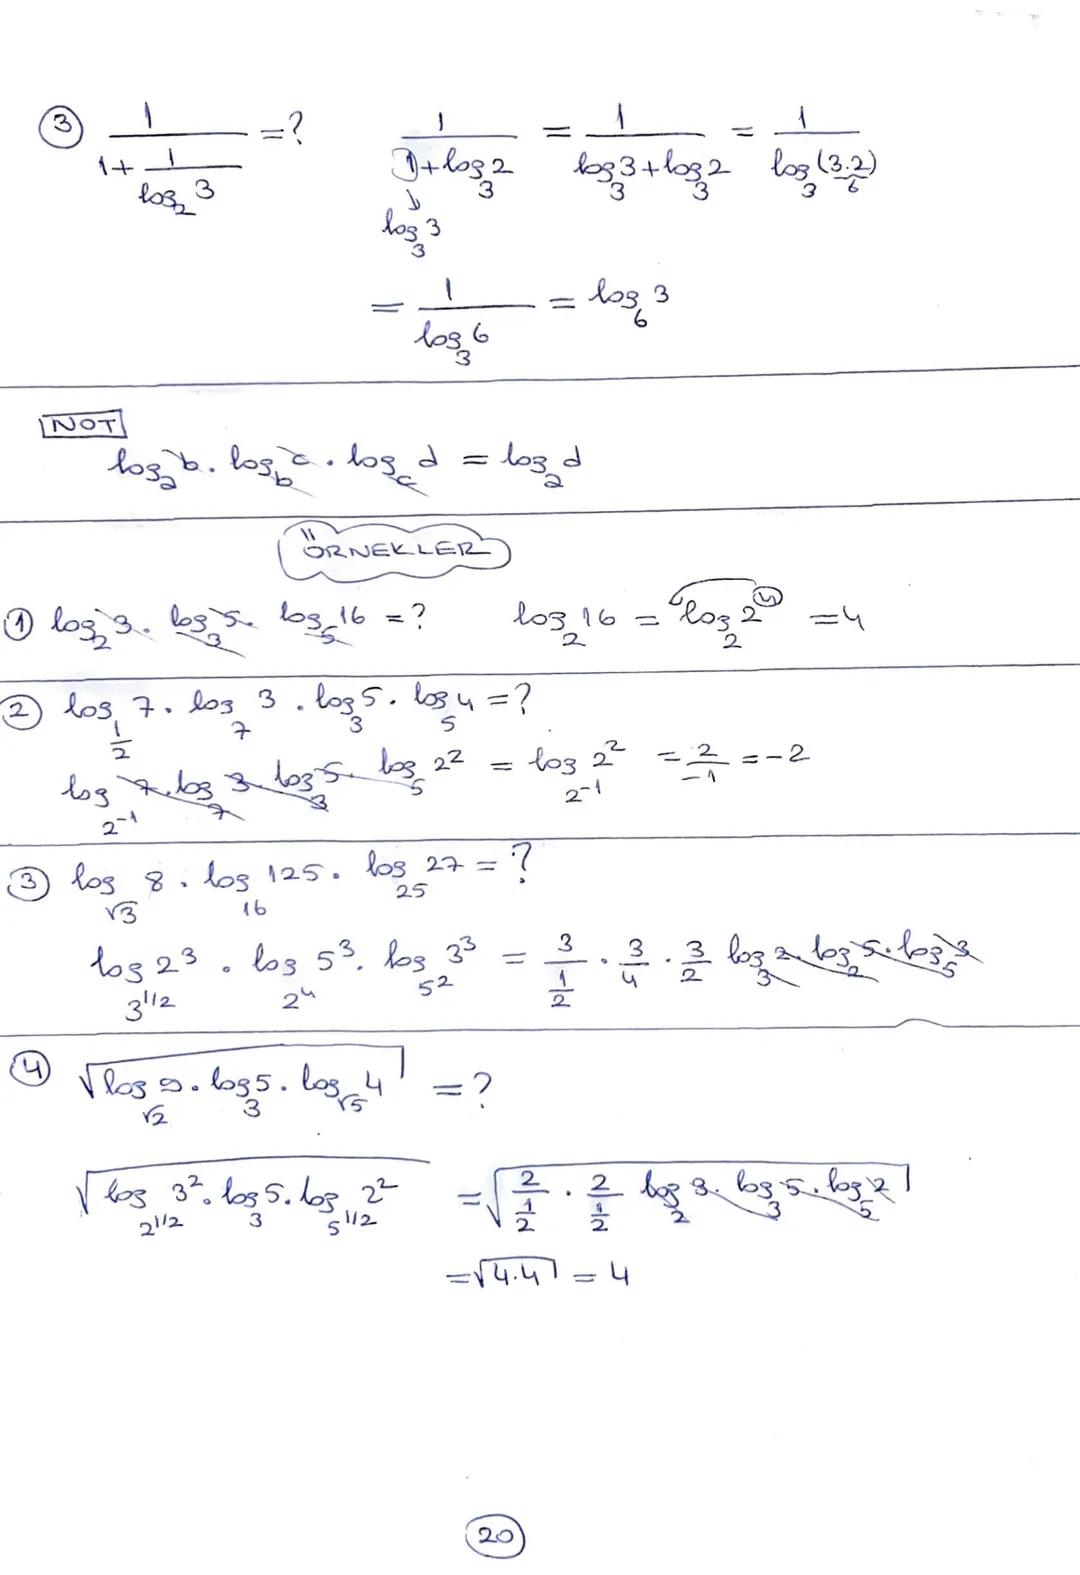 ③ 1/(1 + 1/(log₂ 3)) = ? 1/(1 + log₃ 2) = 1/(log₃ 3 + log₃ 2) = 1/(log₃ (3.2))
6
↓
log₃ 3
= 1/(log₃ 6) = log₆ 3
NOT
log₂ b . log_b c . log_c d = log₂ d
ÖRNEKLER
① log₂ 3 . log₃ 5 . log₅ 16 = ? log₂ 16 = log₂ 2⁴ = 4
② log_(1/2) 7 . log₇ 3 . log₃ 5 . log₅ 4 = ?
log_(2⁻¹) 7 . log₇ 3 . log₃ 5 . log₅ 2² = log_(2⁻¹) 2² = 2/-1 = -2
③ log_(√3) 8 . log₁₆ 125 . log₂₅ 27 = ?
log_(3^1/2) 2³ . log_(2⁴) 5³ . log_(5²) 3³ = 3/(1/2) . 3/4 . 3/2 log₃ 2 . log₂ 5 . log₅ 3
④ √(log_(√2) 9 . log₃ 5 . log_(√5) 4) = ?
√(log_(2^1/2) 3² . log₃ 5 . log_(5^1/2) 2²) = √(2/(1/2) . 2/(1/2) log₂ 3 . log₃ 5 . log₅ 2)
= √(4.4) = 4
20